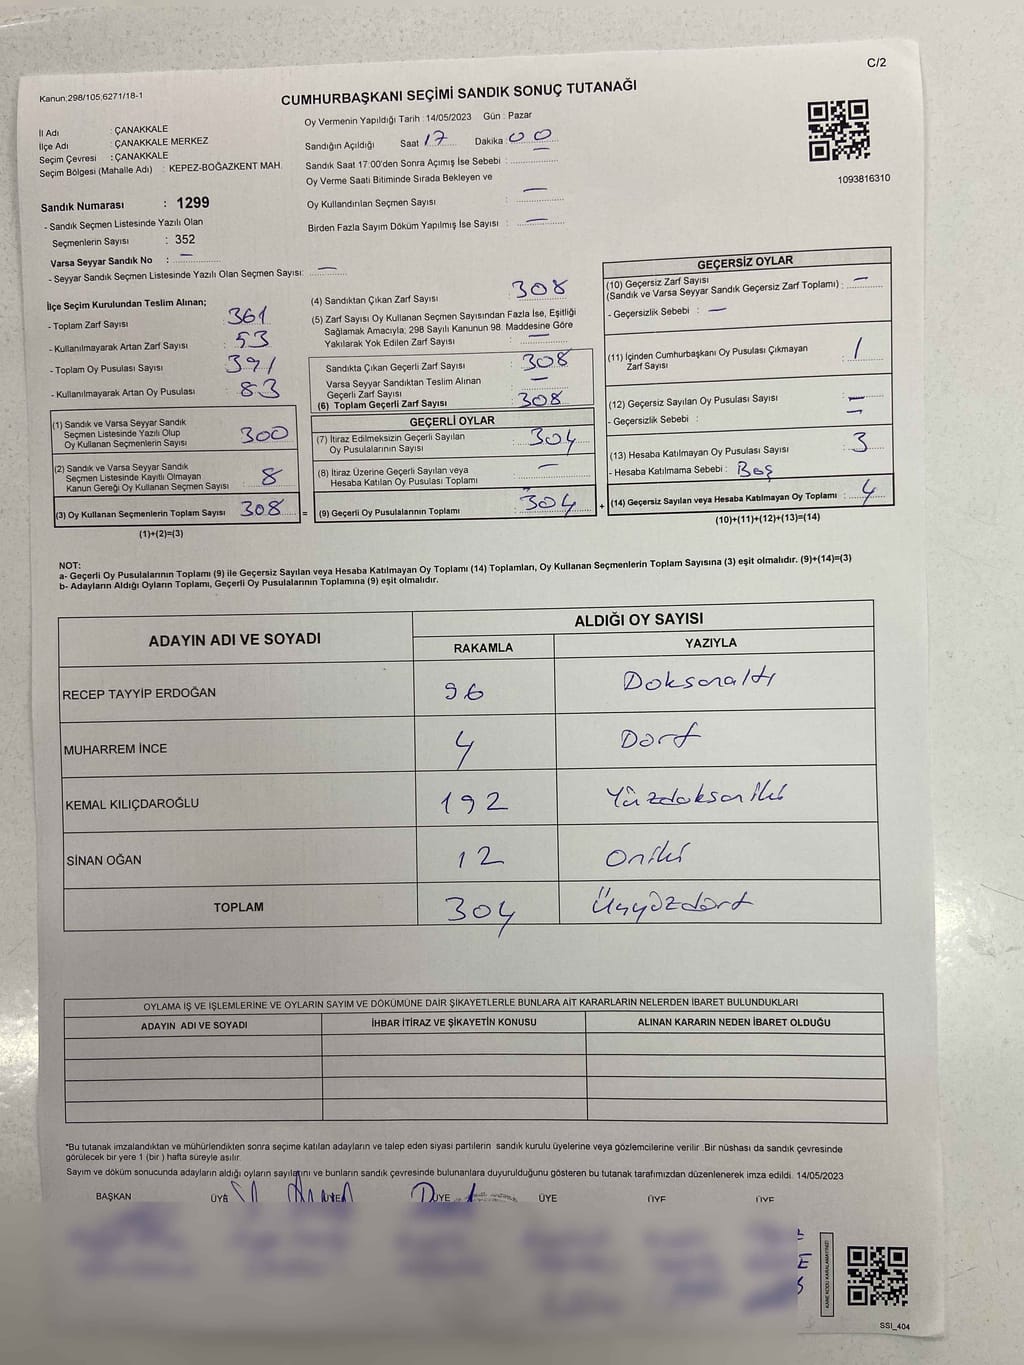 C/2
Kanun;298/105;6271/18-1
CUMHURBAŞKANI SEÇİMİ SANDIK SONUÇ TUTANAĞI
İl Adı : ÇANAKKALE
İlçe Adı : ÇANAKKALE MERKEZ
Seçim Çevresi : ÇANAKKALE
Seçim Bölgesi (Mahalle Adı) : KEPEZ-BOĞAZKENT MAH.
Oy Vermenin Yapıldığı Tarih : 14/05/2023 Gün : Pazar
Sandığın Açıldığı Saat 17 Dakika 00
Sandık Saat 17:00'den Sonra Açımış İse Sebebi :
Oy Verme Saati Bitiminde Sırada Bekleyen ve
Oy Kullandırılan Seçmen Sayısı : —
Birden Fazla Sayım Döküm Yapılmış İse Sayısı : —
1093816310
Sandık Numarası : 1299
- Sandık Seçmen Listesinde Yazılı Olan
Seçmenlerin Sayısı : 352
Varsa Seyyar Sandık No : —
- Seyyar Sandık Seçmen Listesinde Yazılı Olan Seçmen Sayısı: —
İlçe Seçim Kurulundan Teslim Alınan;
- Toplam Zarf Sayısı : 361
- Kullanılmayarak Artan Zarf Sayısı : 53
- Toplam Oy Pusulası Sayısı : 391
- Kullanılmayarak Artan Oy Pusulası : 83
(1) Sandık ve Varsa Seyyar Sandık
Seçmen Listesinde Yazılı Olup
Oy Kullanan Seçmenlerin Sayısı : 300
(2) Sandık ve Varsa Seyyar Sandık
Seçmen Listesinde Kayıtlı Olmayan
Kanun Gereği Oy Kullanan Seçmen Sayısı : 8
(3) Oy Kullanan Seçmenlerin Toplam Sayısı 308
(1)+(2)=(3)
(4) Sandıktan Çıkan Zarf Sayısı : 308
(5) Zarf Sayısı Oy Kullanan Seçmen Sayısından Fazla İse, Eşitliği
Sağlamak Amacıyla; 298 Sayılı Kanunun 98. Maddesine Göre
Yakılarak Yok Edilen Zarf Sayısı : —
Sandıkta Çıkan Geçerli Zarf Sayısı : 308
Varsa Seyyar Sandıktan Teslim Alınan
Geçerli Zarf Sayısı : —
(6) Toplam Geçerli Zarf Sayısı : 308
GEÇERLİ OYLAR
(7) İtiraz Edilmeksizin Geçerli Sayılan
Oy Pusulalarının Sayısı : 304
(8) İtiraz Üzerine Geçerli Sayılan veya
Hesaba Katılan Oy Pusulası Toplamı : —
= (9) Geçerli Oy Pusulalarının Toplamı : 304 +
GEÇERSİZ OYLAR
(10) Geçersiz Zarf Sayısı
(Sandık ve Varsa Seyyar Sandık Geçersiz Zarf Toplamı) : —
- Geçersizlik Sebebi : —
(11) İçinden Cumhurbaşkanı Oy Pusulası Çıkmayan
Zarf Sayısı : 1
(12) Geçersiz Sayılan Oy Pusulası Sayısı : —
- Geçersizlik Sebebi : —
(13) Hesaba Katılmayan Oy Pusulası Sayısı : 3
- Hesaba Katılmama Sebebi : Boş
(14) Geçersiz Sayılan veya Hesaba Katılmayan Oy Toplamı : 4
(10)+(11)+(12)+(13)=(14)
NOT:
a- Geçerli Oy Pusulalarının Toplamı (9) ile Geçersiz Sayılan veya Hesaba Katılmayan Oy Toplamı (14) Toplamları, Oy Kullanan Seçmenlerin Toplam Sayısına (3) eşit olmalıdır. (9)+(14)=(3)
b- Adayların Aldığı Oyların Toplamı, Geçerli Oy Pusulalarının Toplamına (9) eşit olmalıdır.
ADAYIN ADI VE SOYADI
ALDIĞI OY SAYISI
RAKAMLA YAZIYLA
RECEP TAYYİP ERDOĞAN 96 Doksanaltı
MUHARREM İNCE 4 Dört
KEMAL KILIÇDAROĞLU 192 Yüzdoksaniki
SİNAN OĞAN 12 Oniki
TOPLAM 304 Üçyüzdört
OYLAMA İŞ VE İŞLEMLERİNE VE OYLARIN SAYIM VE DÖKÜMÜNE DAİR ŞİKAYETLERLE BUNLARA AİT KARARLARIN NELERDEN İBARET BULUNDUKLARI
ADAYIN ADI VE SOYADI İHBAR İTİRAZ VE ŞİKAYETİN KONUSU ALINAN KARARIN NEDEN İBARET OLDUĞU
*Bu tutanak imzalandıktan ve mühürlendikten sonra seçime katılan adayların ve talep eden siyasi partilerin sandık kurulu üyelerine veya gözlemcilerine verilir. Bir nüshası da sandık çevresinde
görülecek bir yere 1 (bir) hafta süreyle asılır.
Sayım ve döküm sonucunda adayların aldığı oyların sayılarını ve bunların sandık çevresinde bulunanlara duyurulduğunu gösteren bu tutanak tarafımızdan düzenlenerek imza edildi. 14/05/2023
BAŞKAN ÜYE ÜYE ÜYE ÜYE ÜYE ÜYE
SSI_404